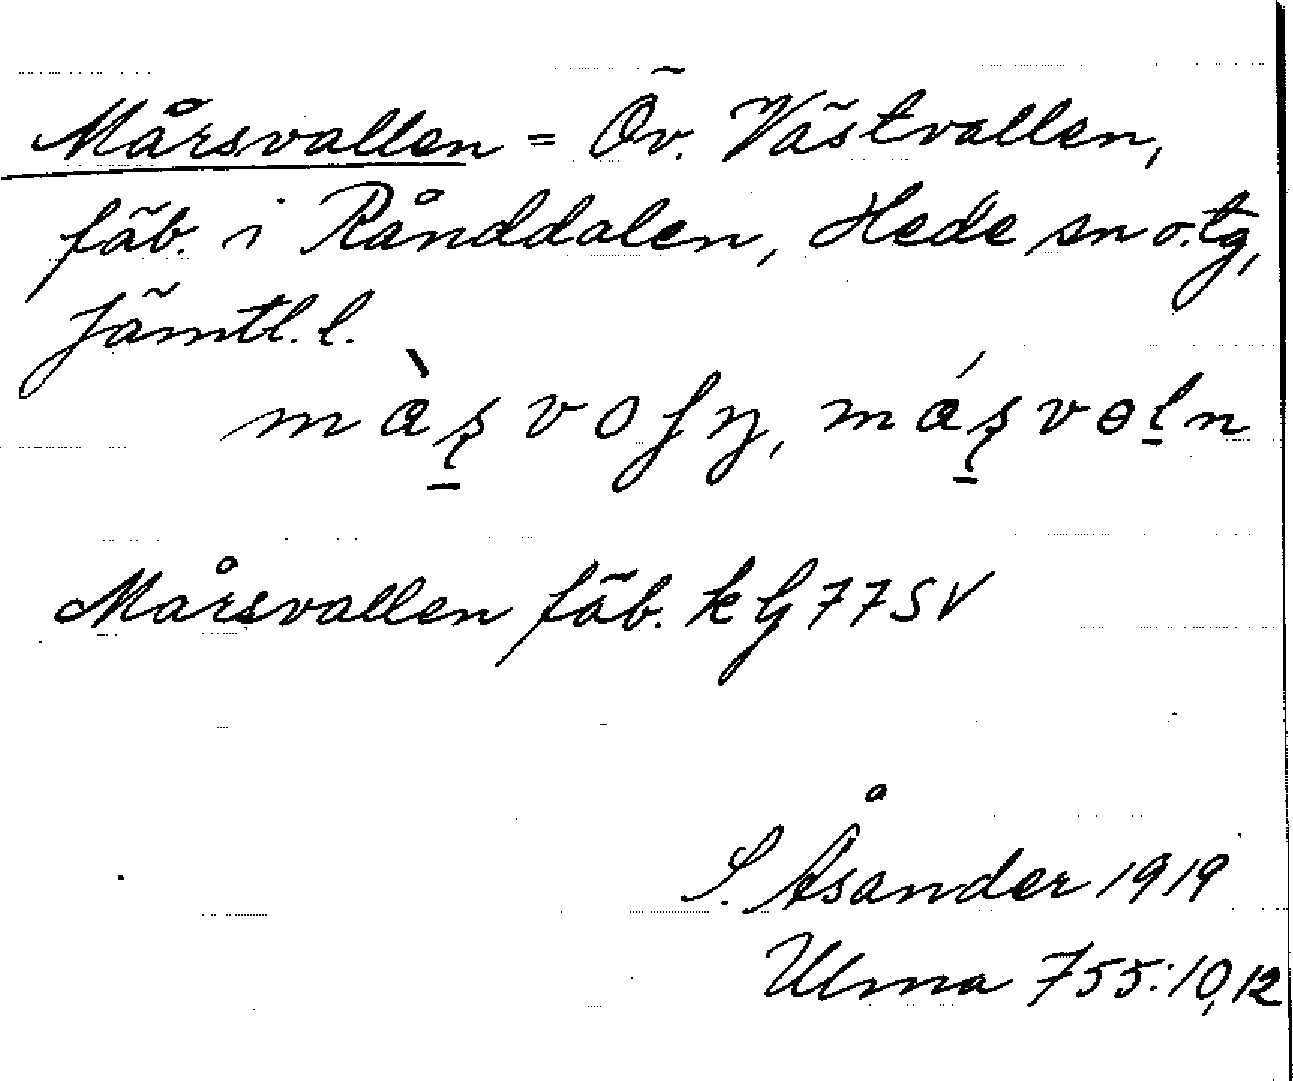 Mårsvallen = Öv. Västvallen,
fäb. i Rånddalen, Hede sn o. tg,
Jämtl. l.
Mårsvallen fäb. k G 77 SV
S. Åsander 1919
Ulma 755:10,12